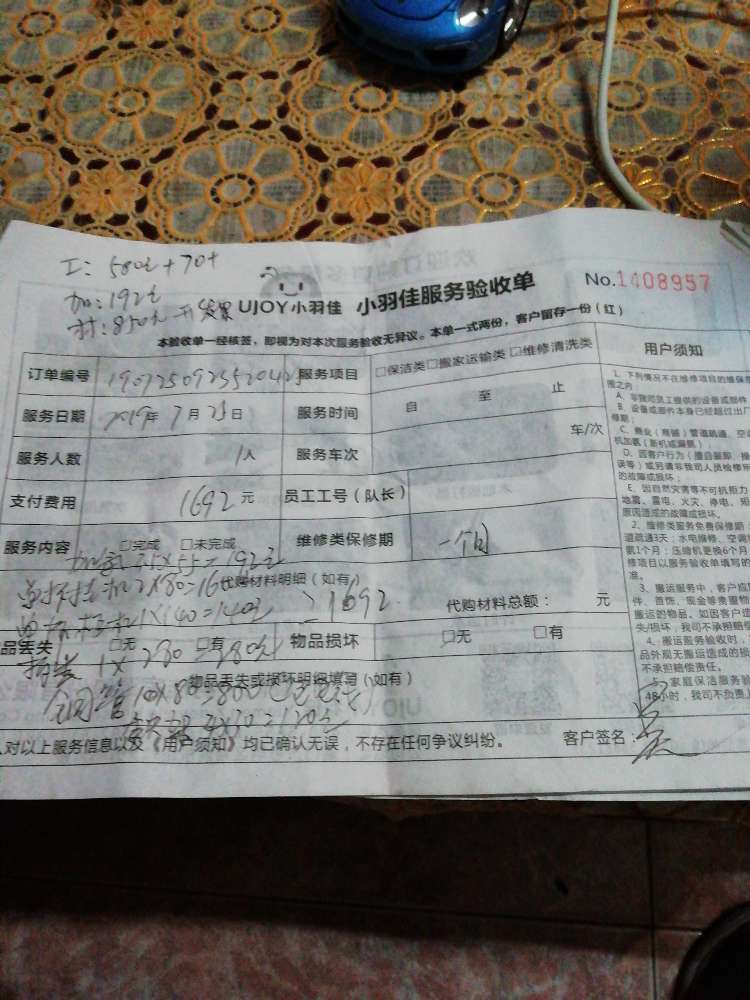 工：580元+70+
加：192元
材：850元 开发票
UJOY小羽佳 小羽佳服务验收单
No.1408957
本验收单一经核签，即视为对本次服务验收无异议。本单一式两份，客户留存一份（红）
订单编号
服务项目 □保洁类□搬家运输类 □维修清洗类
服务日期 2019年7月25日 服务时间 自 至 止
服务人数 1人 服务车次 车/次
支付费用 1692元 员工工号（队长）
服务内容 □完成 □未完成 维修类保修期 一个月
代购材料明细（如有） 代购材料总额： 元
=192元
2×80=16
1×140=140元
1692
品丢失 □无 □有 物品损坏 □无 □有
物品丢失或损坏明细填写（如有）
铜管10×80=800
对以上服务信息以及《用户须知》均已确认无误，不存在任何争议纠纷。 客户签名：
用户须知
1、下列情况不在维修项目的维保
围之内
A、非我司员工提供的设备或部件
B、设备或部件本身已经超过出厂
修期；
C、商业（商铺）管道疏通、空
机加氨（新机或漏氨）
D、因客户行为（擅自装卸、操
误等）或另请非我司人员检修所
的故障或损坏；
E、因自然灾害等不可抗拒力
地震、雷电、火灾、停电、短
原因造成的故障或损坏。
2、维修类服务免费保修期：
道疏通3天；水电维修、空调
氨1个月；压缩机更换6个月
修项目以服务验收单填写的
准。
3、搬运服务中，客户应
件、首饰、现金等贵重物
搬运的物品。如因客户违
失/损坏，我司不承担赔偿
4、搬运服务验收时，
品外观无搬运造成的损
不承担赔偿责任。
5、家庭保洁服务验
48小时，我司不负责上